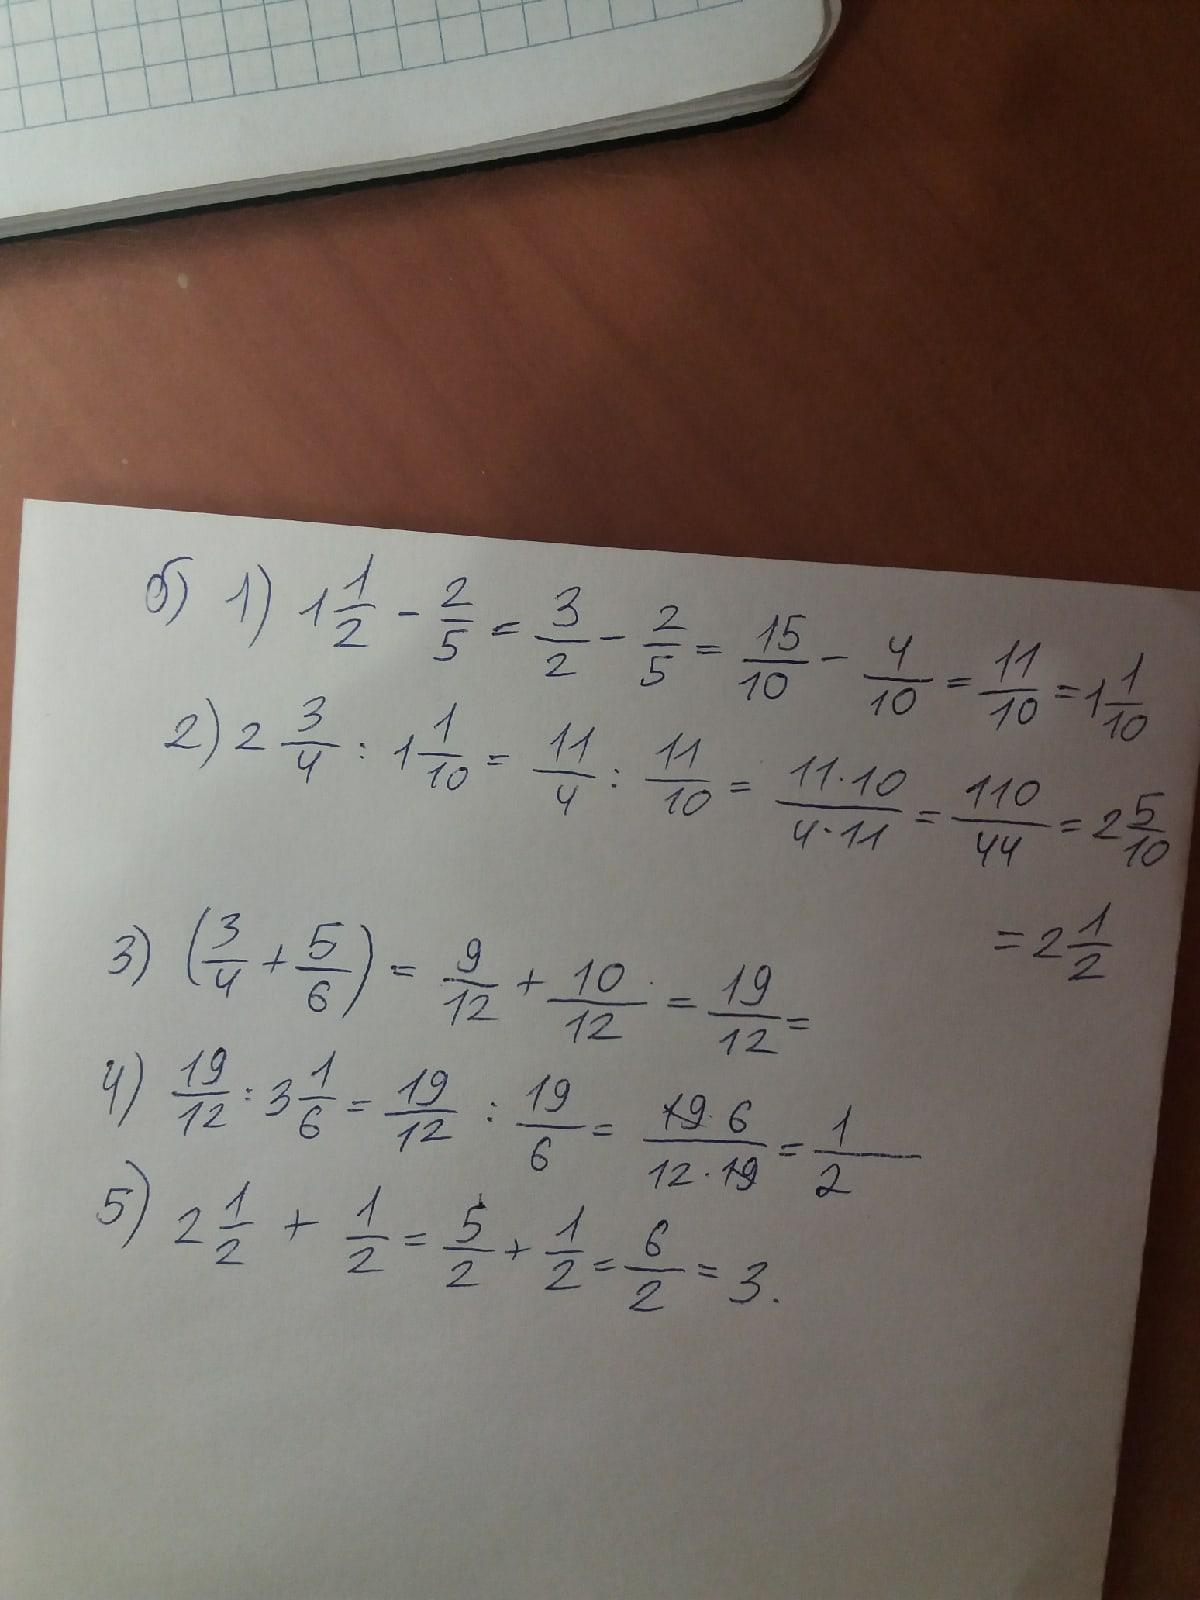 б) 1) 1 1/2 - 2/5 = 3/2 - 2/5 = 15/10 - 4/10 = 11/10 = 1 1/10
2) 2 3/4 : 1 1/10 = 11/4 : 11/10 = 11·10/4·11 = 110/44 = 2 5/10
= 2 1/2
3) (3/4 + 5/6) = 9/12 + 10/12 = 19/12 =
4) 19/12 : 3 1/6 = 19/12 : 19/6 = 19·6/12·19 = 1/2
5) 2 1/2 + 1/2 = 5/2 + 1/2 = 6/2 = 3.